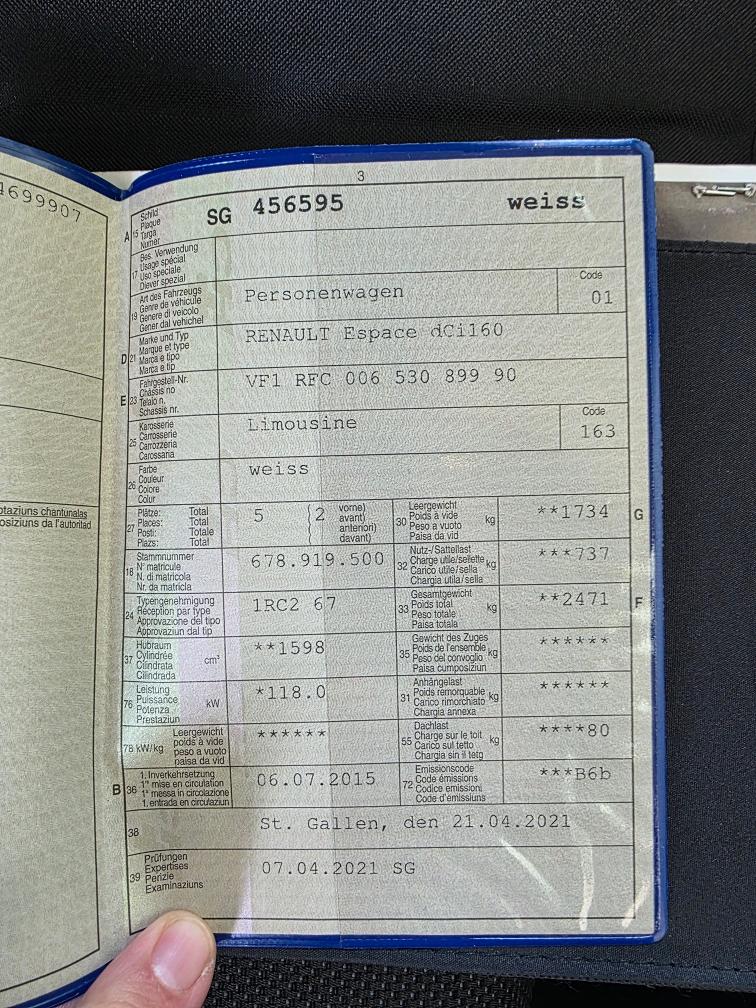 4699907
taziuns chantunalas
osiziuns da l'autoritad
3
A 15 Schild
Plaque
Targa
Numer
SG 456595 weiss
17 Bes. Verwendung
Usage spécial
Uso speciale
Diever spezial
19 Art des Fahrzeugs
Genre de véhicule
Genere di veicolo
Gener dal vehichel
Personenwagen
Code
01
D 21 Marke und Typ
Marque et type
Marca e tipo
Marca e tip
RENAULT Espace dCi160
E 23 Fahrgestell-Nr.
Châssis no
Telaio n.
Schassis nr.
VF1 RFC 006 530 899 90
25 Karosserie
Carrosserie
Carrozzeria
Carossaria
Limousine
Code
163
26 Farbe
Couleur
Colore
Colur
weiss
27 Plätze: Total
Places: Total
Posti: Totale
Plazs: Total
5 (2 vorne)
avant)
anteriori)
davant)
30 Leergewicht
Poids à vide
Peso a vuoto
Paisa da vid
kg
**1734
G
18 Stammnummer
N° matricule
N. di matricola
Nr. da matricla
678.919.500
32 Nutz-/Sattellast
Charge utile/sellette
Carico utile/sella
Chargia utila/sella
kg
***737
24 Typengenehmigung
Réception par type
Approvazione del tipo
Approvaziun dal tip
1RC2 67
33 Gesamtgewicht
Poids total
Peso totale
Paisa totala
kg
**2471
F
37 Hubraum
Cylindrée
Cilindrata
Cilindrada
cm³
**1598
35 Gewicht des Zuges
Poids de l'ensemble
Peso del convoglio
Paisa cumposiziun
kg
******
76 Leistung
Puissance
Potenza
Prestaziun
kW
*118.0
31 Anhängelast
Poids remorquable
Carico rimorchiato
Chargia annexa
kg
******
78 kW/kg Leergewicht
poids à vide
peso a vuoto
paisa da vid
******
55 Dachlast
Charge sur le toit
Carico sul tetto
Chargia sin il tetg
kg
****80
B 36 1. Inverkehrsetzung
1re mise en circulation
1a messa in circolazione
1. entrada en circulaziun
06.07.2015
72 Emissionscode
Code émissions
Codice emissioni
Code d'emissiuns
***B6b
38 St. Gallen, den 21.04.2021
39 Prüfungen
Expertises
Perizie
Examinaziuns
07.04.2021 SG